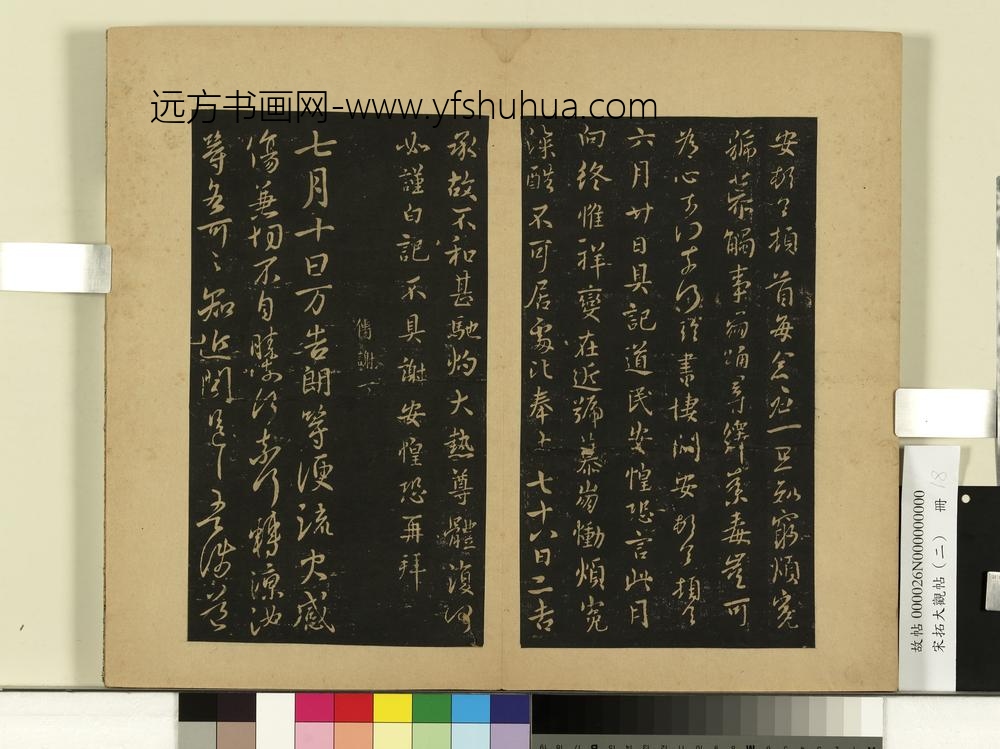 远方书画网-www.yfshuhua.com
安頓首頓首每念君一旦知窮煩冤
號慕觸事崩踊尋繹荼毒豈可
為心奈何奈何臨書悽悶安頓首頓首
六月廿日具記道民安惶恐言此月
向終惟祥變在近號慕崩慟煩冤
深酷不可居處比奉十七十八日二告
承故不和甚馳灼大熱尊體復何
如謹白記不具謝安惶恐再拜
七月十日万告朗等便流火感
傷兼切不自勝奈何奈何轉涼汝
等各可可知近問邑邑吾涉道
故帖 000026N000000000000
宋拓大觀帖(二) 冊 18